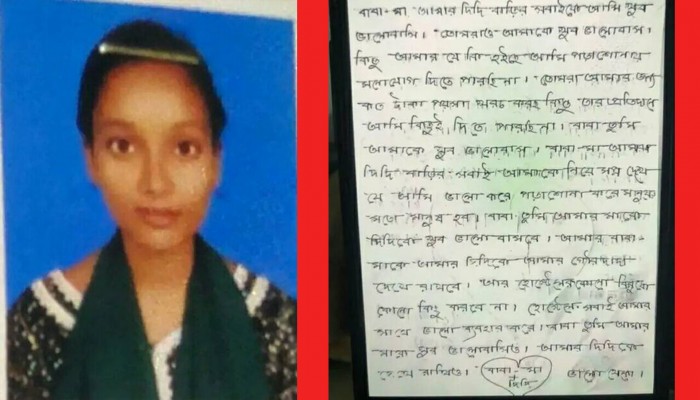 বাবা-মা আমার দিদি বাড়ির সবাইকে আমি খুব
ভালোবাসি। তোমরাও আমাকে খুব ভালোবাস।
কিন্তু আমার যে কি হইছে আমি পড়াশোনায়
মনোযোগ দিতে পারছি না। তোমরা আমার জন্য
কত টাকা পয়সা খরচ করছ কিন্তু তার প্রতিদানে
আমি কিছুই দিতে পারছি না। বাবা তুমি
আমাকে খুব ভালোবাস। বাবা-মা আমার
দিদি বাড়ির সবাই আমাকে নিয়ে স্বপ্ন দেখে
যে আমি ভালো করে পড়াশোনা করে মানুষের
মতো মানুষ হব। বাবা তুমি আমার মাকে
দিদিকে খুব ভালো বাসবে। আমার বাবা
মাকে আমার দিদিকে আমার
দেখে রাখবে। আর হোস্টেলের কোনো কিছুকে
কোনো কিছু করবে না। হোস্টেলে সবাই আমার
সাথে ভালো ব্যবহার করে। বাবা তুমি আমার
মাকে খুব ভালোবাসিও। আমার দিদিকে
দেখে রাখিও। বাবা-মা ভালো থেকো।
+
দিদি